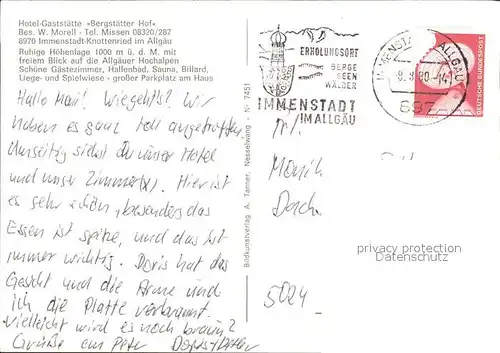 Hotel-Gaststätte »Bergstätter Hof«
Bes. W. Morell - Tel. Missen 08320/287
8970 Immenstadt-Knottenried im Allgäu
Ruhige Höhenlage 1000 m ü. d. M. mit
freiem Blick auf die Allgäuer Hochalpen
Schöne Gästezimmer, Hallenbad, Sauna, Billard,
Liege- und Spielwiese - großer Parkplatz am Haus
Hallo Moni! Wiegehts? Wir
haben es ganz toll angetroffen.
Umseitig siehst du unser Hotel
und unser Zimmer(x). Hier ist
es sehr schön, besonders das
Essen ist spitze, und das ist
immer wichtig. Doris hat das
Gesicht und die Arme und
ich die Platte verbrannt.
Vielleicht wird es noch braun?
Grüße an Peter Doris/Dieter
Bildkunstverlag A. Tanner, Nesselwang - N° 7451
ERHOLUNGSORT
BERGE
SEEN
WÄLDER
IMMENSTADT
IM ALLGÄU
IMMENSTADT ALLGÄU
-9.8.80-14
897
DEUTSCHE BUNDESPOST
Frl.
Monik
Dach
5024
privacy protection
Datenschutz